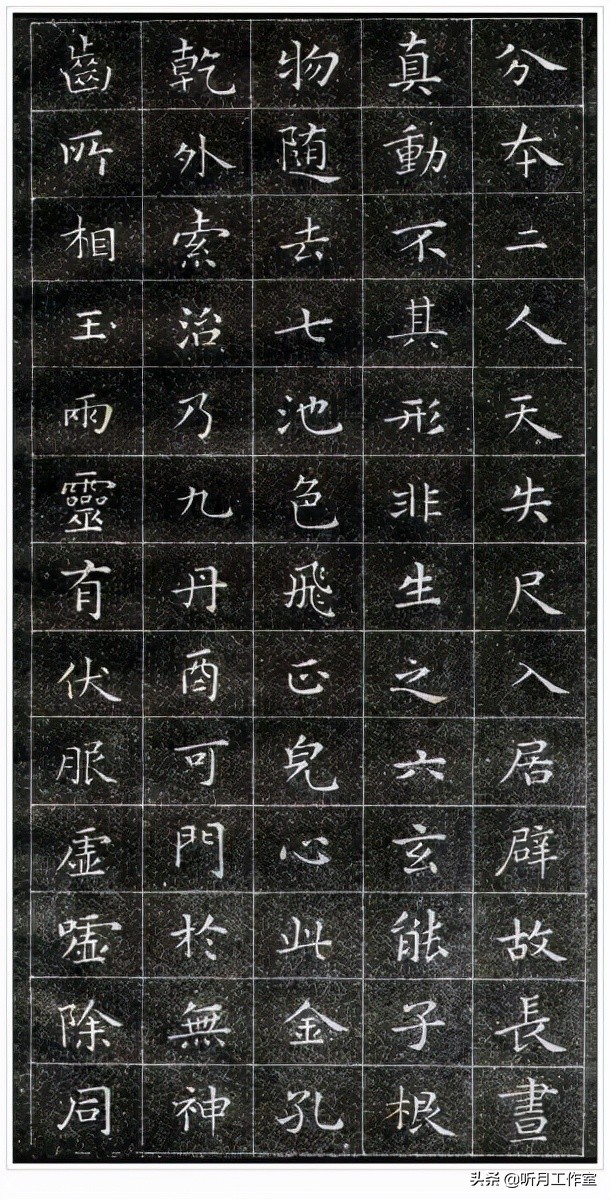 分本二人天失尺入居辟故長晝
真動不其形非生之六玄能子根
物随去七池色飛正皃心此金孔
乾外索治乃九丹酉可門於無神
齒所相玉雨靈有伏服虚嘘除同
头条 @听月工作室